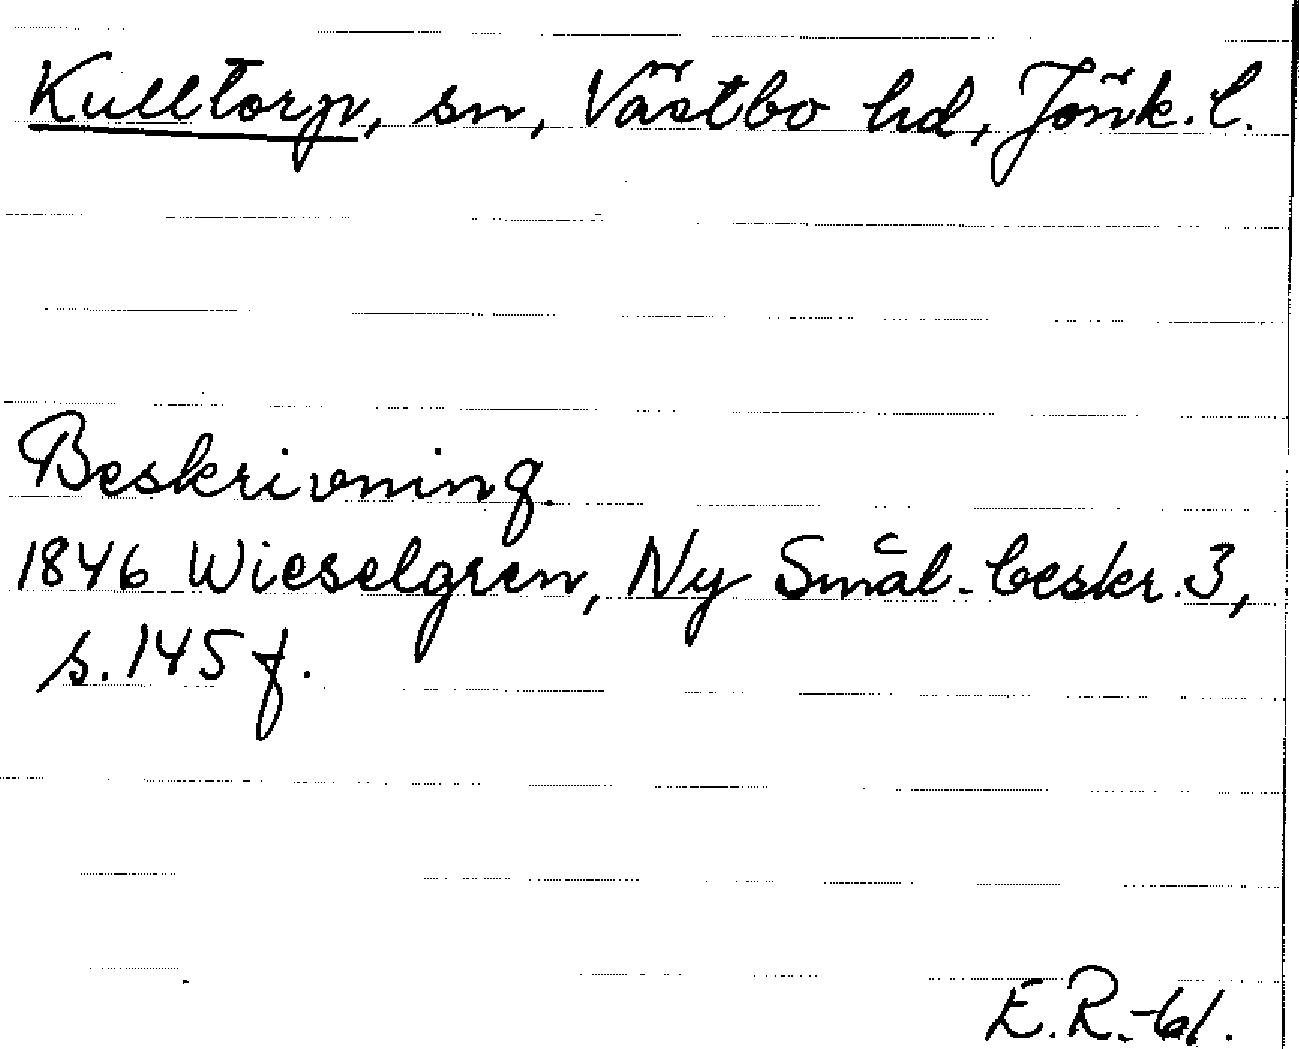 Kulltorp, sn, Västbo hd, Jönk. l.
Beskrivning.
1846 Wieselgren, Ny Smål. beskr. 3,
s. 145 f.
E.R.-61.